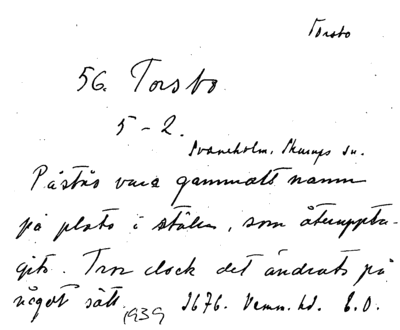 Torsbo
56. Torsbo
5-2.
Svaneholm, Skurups sn.
Påstås vara gammalt namn
på plats i stället, som återuppta-
gits. Tror dock det ändrats på
något sätt.
1939 2676. Vemm. hd. E.O.